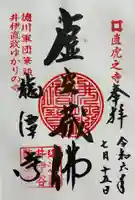 直虎之寺
奉拝
令和六年
七月十五日
虚空蔵佛
徳川軍団筆頭
井伊直政ゆかりの寺
龍潭寺